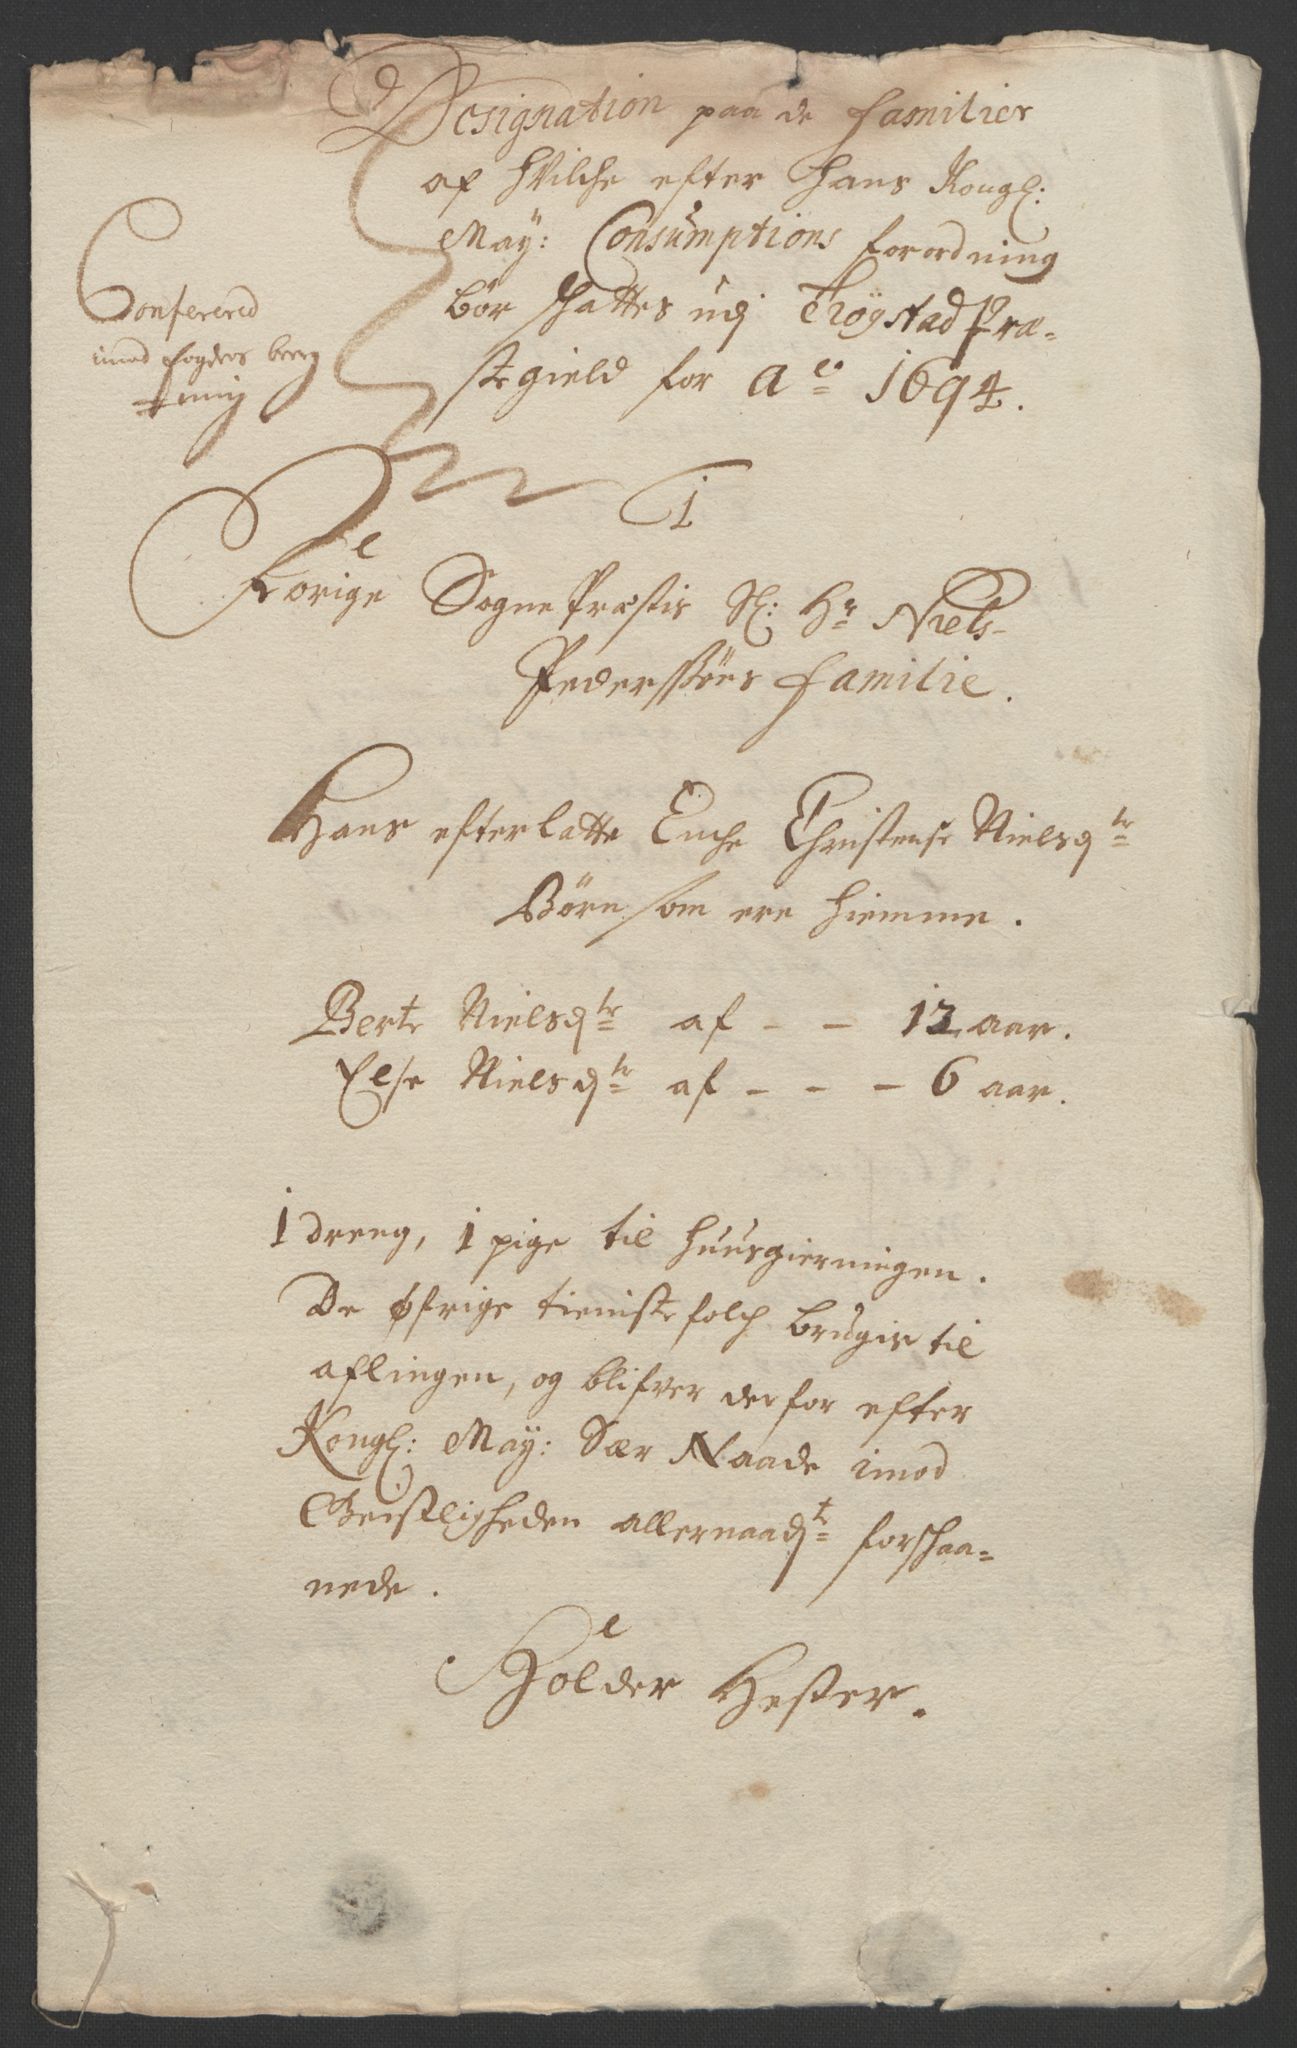 Designation paa de Familier
af hvilche efter Hans Kongl:
May: Consumptions forordning
bør skattes udj Trøgstad Præ-
stegield for Ao 1694.
Confererid
imod fogdens bereg
ning
1
Forige Sogne Præstis Sl: Hr Niels
Pederssøns Familie.
Hans efterlatte Enche Christense Nielsdtr
Børn som ere hiemme.
Berte Nielsdtr af - - 12 aar.
Else Nielsdtr af - - - 6 aar.
1 dreng, 1 pige til huusgierningen.
De øfrige tienistefolch brugis til
aflingen, og blifver derfor efter
Kongl: May: Sær Naade imod
Geistligheden allernaadte forschaa-
nede.
Holder Hester.